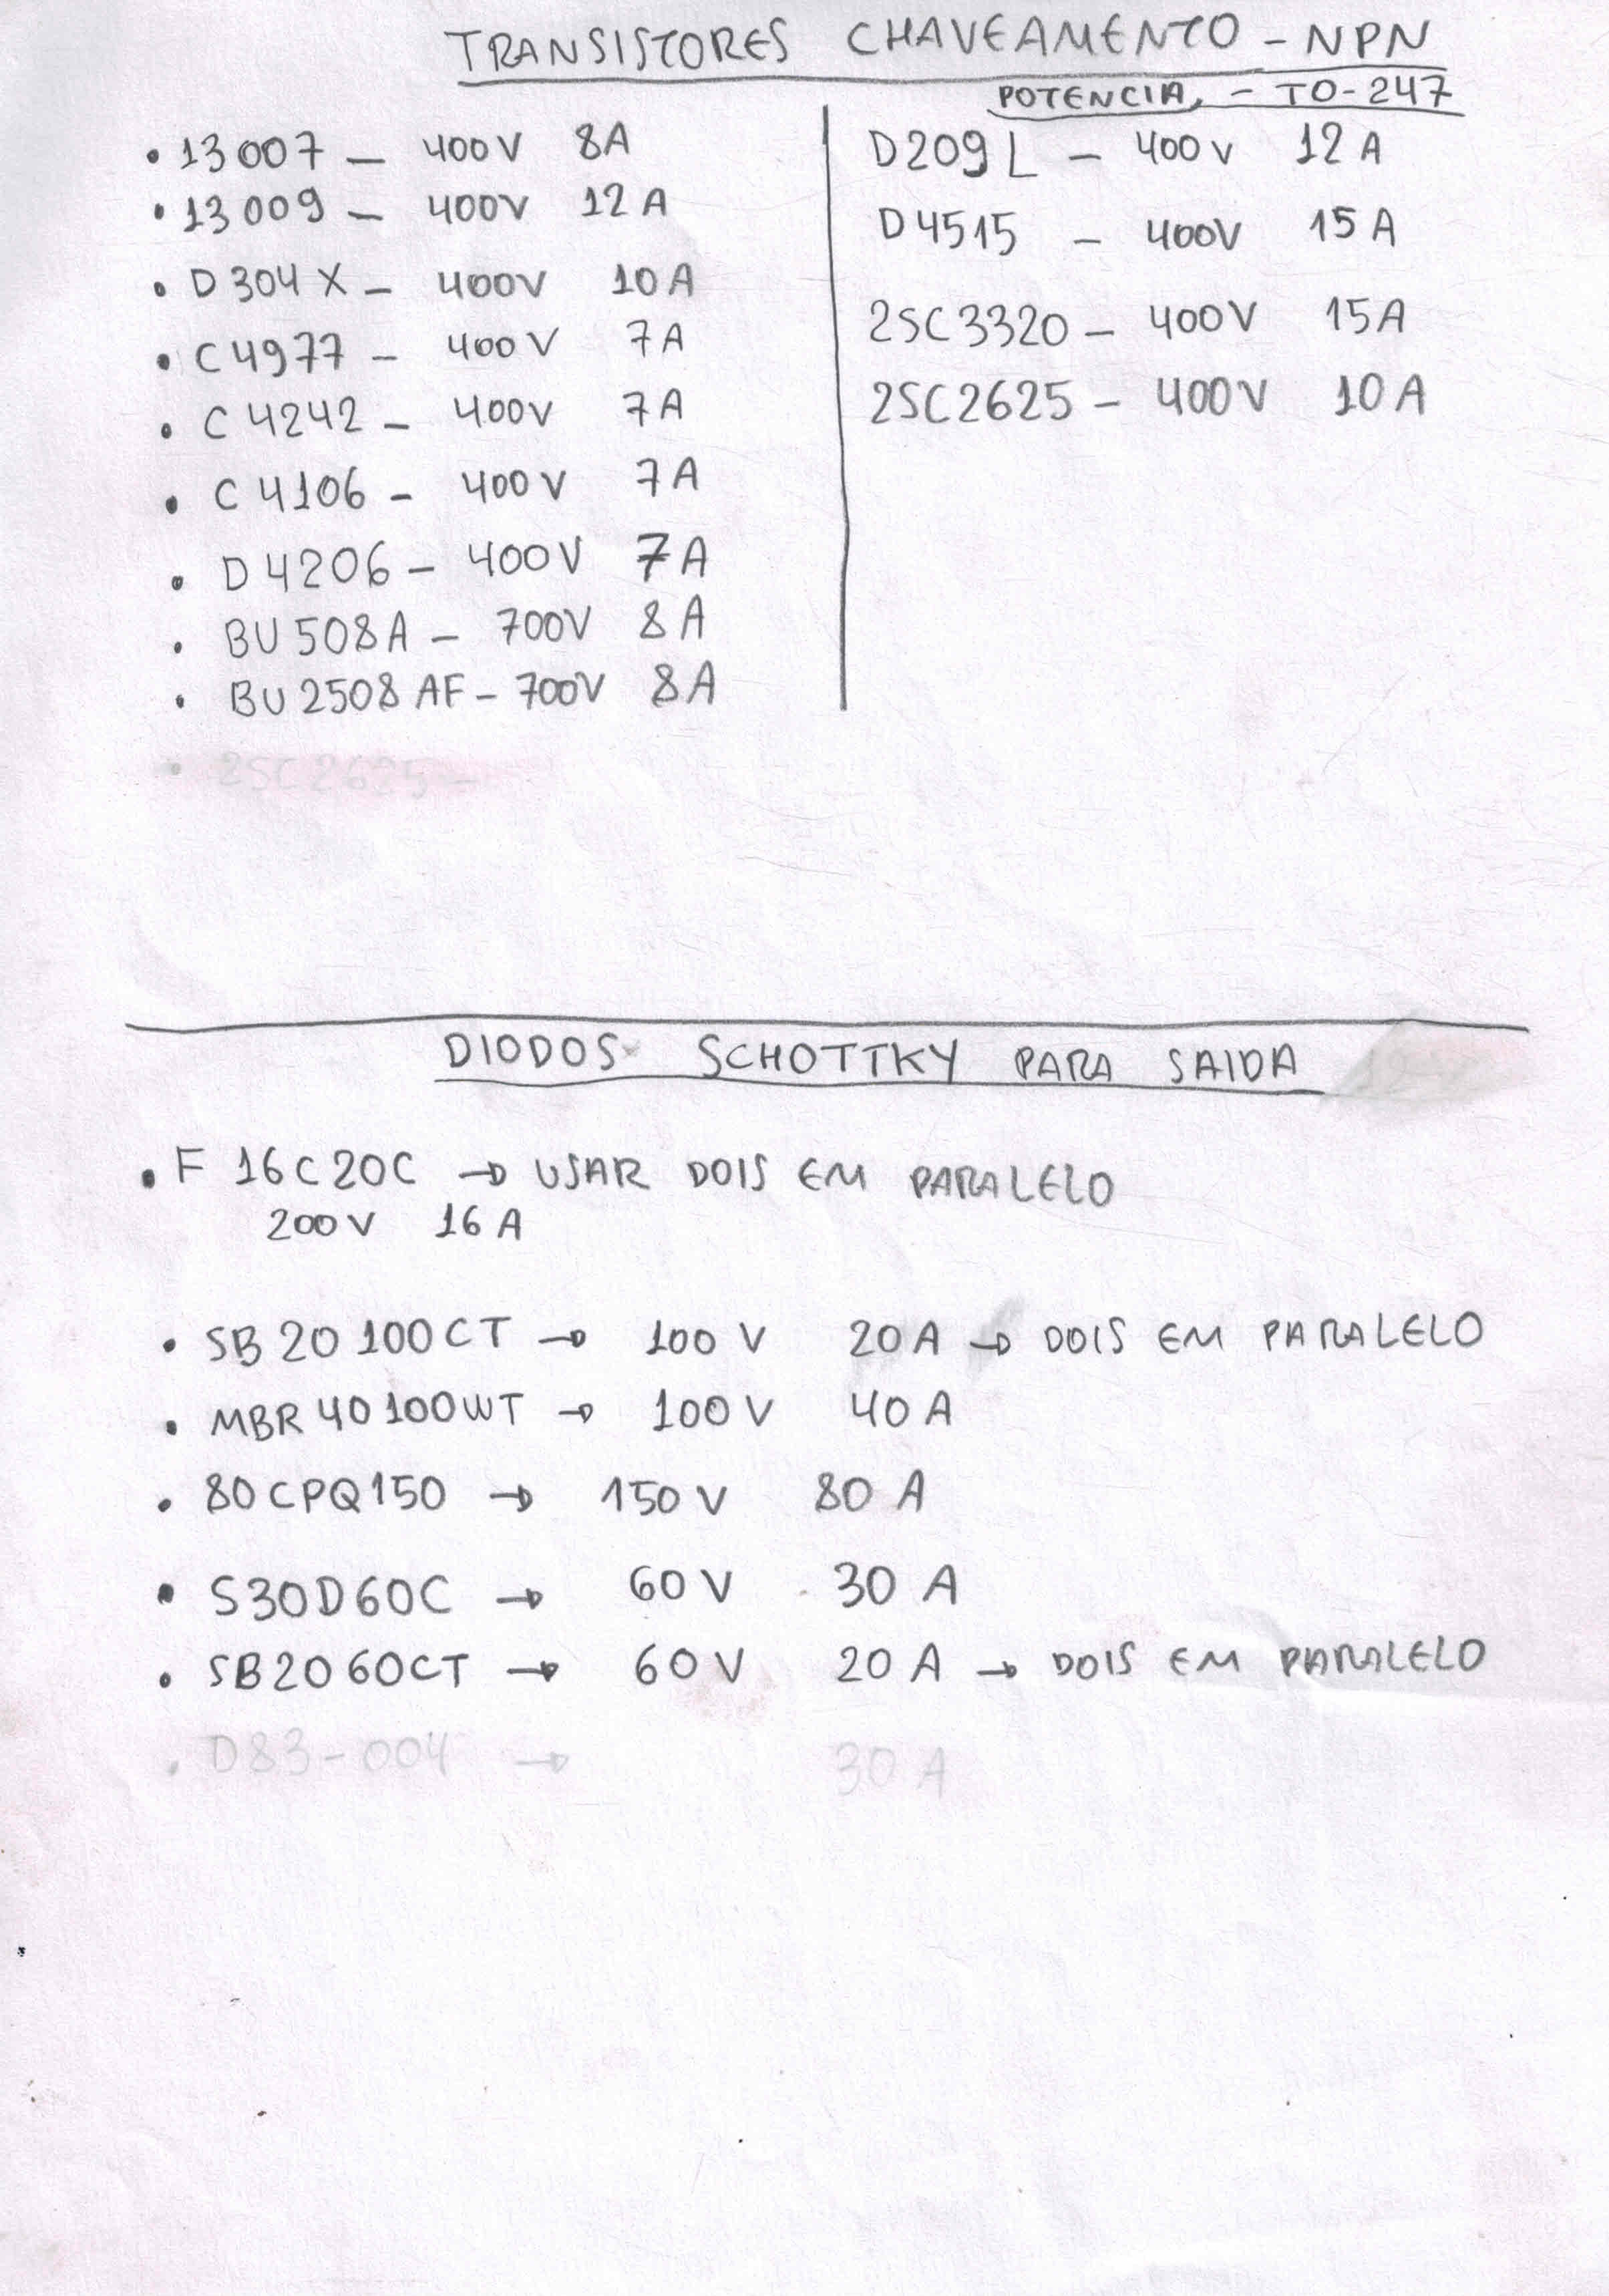 TRANSISTORES CHAVEAMENTO - NPN
POTENCIA, - TO-247
• 13007 - 400V 8A
• 13009 - 400V 12A
• D304X - 400V 10A
• C4977 - 400V 7A
• C4242 - 400V 7A
• C4106 - 400V 7A
• D4206 - 400V 7A
• BU508A - 700V 8A
• BU2508AF - 700V 8A
• 2SC2625 -
D209L - 400V 12A
D4515 - 400V 15A
2SC3320 - 400V 15A
2SC2625 - 400V 10A
DIODOS SCHOTTKY PARA SAIDA
• F16C20C → USAR DOIS EM PARALELO
200V 16A
• SB20100CT → 100V 20A → DOIS EM PARALELO
• MBR40100WT → 100V 40A
• 80CPQ150 → 150V 80A
• S30D60C → 60V 30A
• SB2060CT → 60V 20A → DOIS EM PARALELO
• D83-004 → 30A